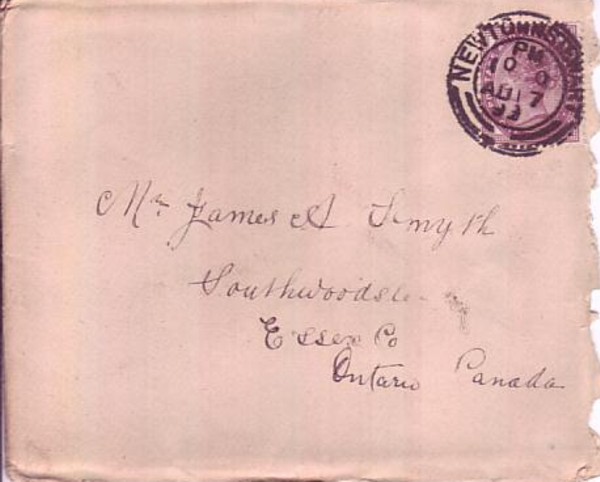 NEWTOWNSTEWART
PM
10 0
AU 17
99
Mr James A Smyth
Southwoodslee
Essex Co
Ontario Canada